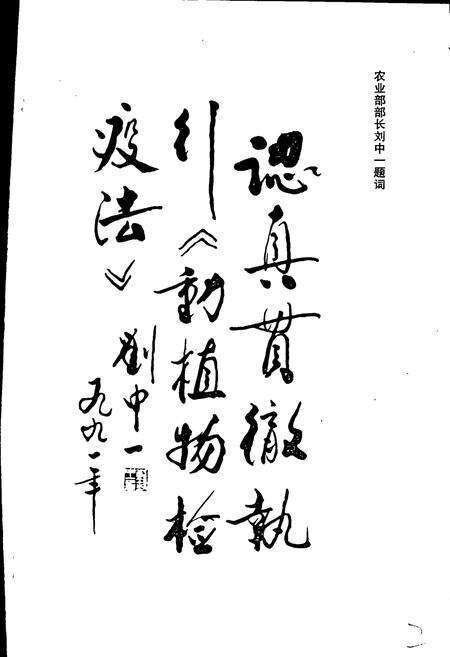 农业部部长刘中一题词
認真贯徹執
行《動植物检
疫法》
劉中一
一九九一年